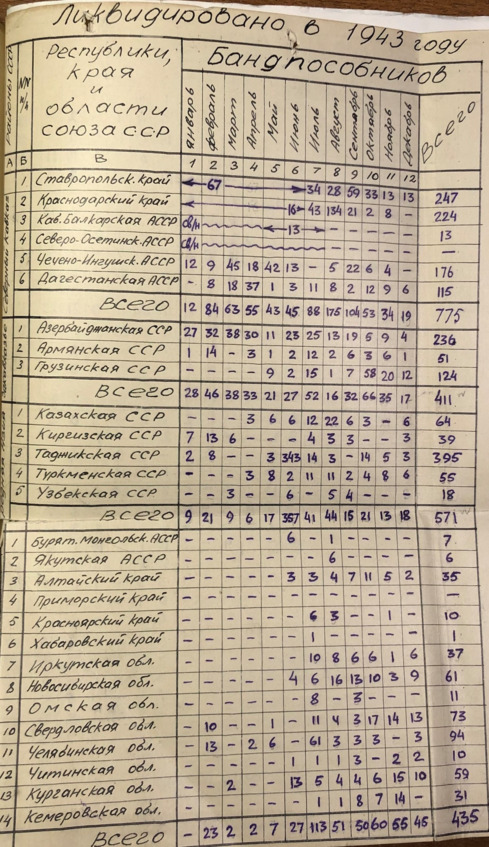 Ликвидировано в 1943 году
Районы СССР
NN п/п
Республики, края и области союза ССР
Бандпособников
январь февраль март апрель май июнь июль август сентябрь октябрь ноябрь декабрь Всего
А Б В 1 2 3 4 5 6 7 8 9 10 11 12
1 Ставропольск. край 67 34 28 59 33 13 13 247
2 Краснодарский край 16 43 134 21 2 8 - 224
3 Каб. Балкарская АССР св/н 13 - - - - - 13
4 Северо-Осетинск. АССР св/н - - - - - -
5 Чечено-Ингушск. АССР 12 9 45 18 42 13 - 5 22 6 4 - 176
6 Дагестанская АССР - 8 18 37 1 3 11 8 2 12 9 6 115
Всего 12 84 63 55 43 45 88 175 104 53 34 19 775
1 Азербайджанская ССР 27 32 38 30 11 23 25 13 19 5 9 4 236
2 Армянская ССР 1 14 - 3 1 2 12 2 6 3 6 1 51
3 Грузинская ССР - - - - 9 2 15 1 7 58 20 12 124
Всего 28 46 38 33 21 27 52 16 32 66 35 17 411
1 Казахская ССР - - - 3 6 6 12 22 6 3 - 6 64
2 Киргизская ССР 7 13 6 - - - 4 3 3 - - 3 39
3 Таджикская ССР 2 8 - - 3 343 14 3 - 14 5 3 395
4 Туркменская ССР - - - 3 8 2 11 11 2 4 8 6 55
5 Узбекская ССР - - 3 - - 6 - 5 4 - - - 18
Всего 9 21 9 6 17 357 41 44 15 21 13 18 571
1 Бурят. Монгольск. АССР - - - - - 6 - 1 - - - - 7
2 Якутская АССР - - - - - - - 6 - - - - 6
3 Алтайский край - - - - - 3 3 4 7 11 5 2 35
4 Приморский край - - - - - - - - - - - - -
5 Красноярский край - - - - - - 6 3 - - 1 - 10
6 Хабаровский край - - - - - - 1 - - - - - 1
7 Иркутская обл. - - - - - - 10 8 6 6 1 6 37
8 Новосибирская обл. - - - - - 4 6 16 13 10 3 9 61
9 Омская обл. - - - - - - 8 - 3 - - - 11
10 Свердловская обл. - 10 - - 1 - 11 4 3 17 14 13 73
11 Челябинская обл. - 13 - 2 6 - 61 3 3 3 - 3 94
12 Читинская обл. - - - - - 1 1 1 3 - 2 2 10
13 Курганская обл. - - 2 - - 13 5 4 4 6 15 10 59
14 Кемеровская обл. - - - - - - 1 1 8 7 14 - 31
Всего - 23 2 2 7 27 113 51 50 60 55 45 435